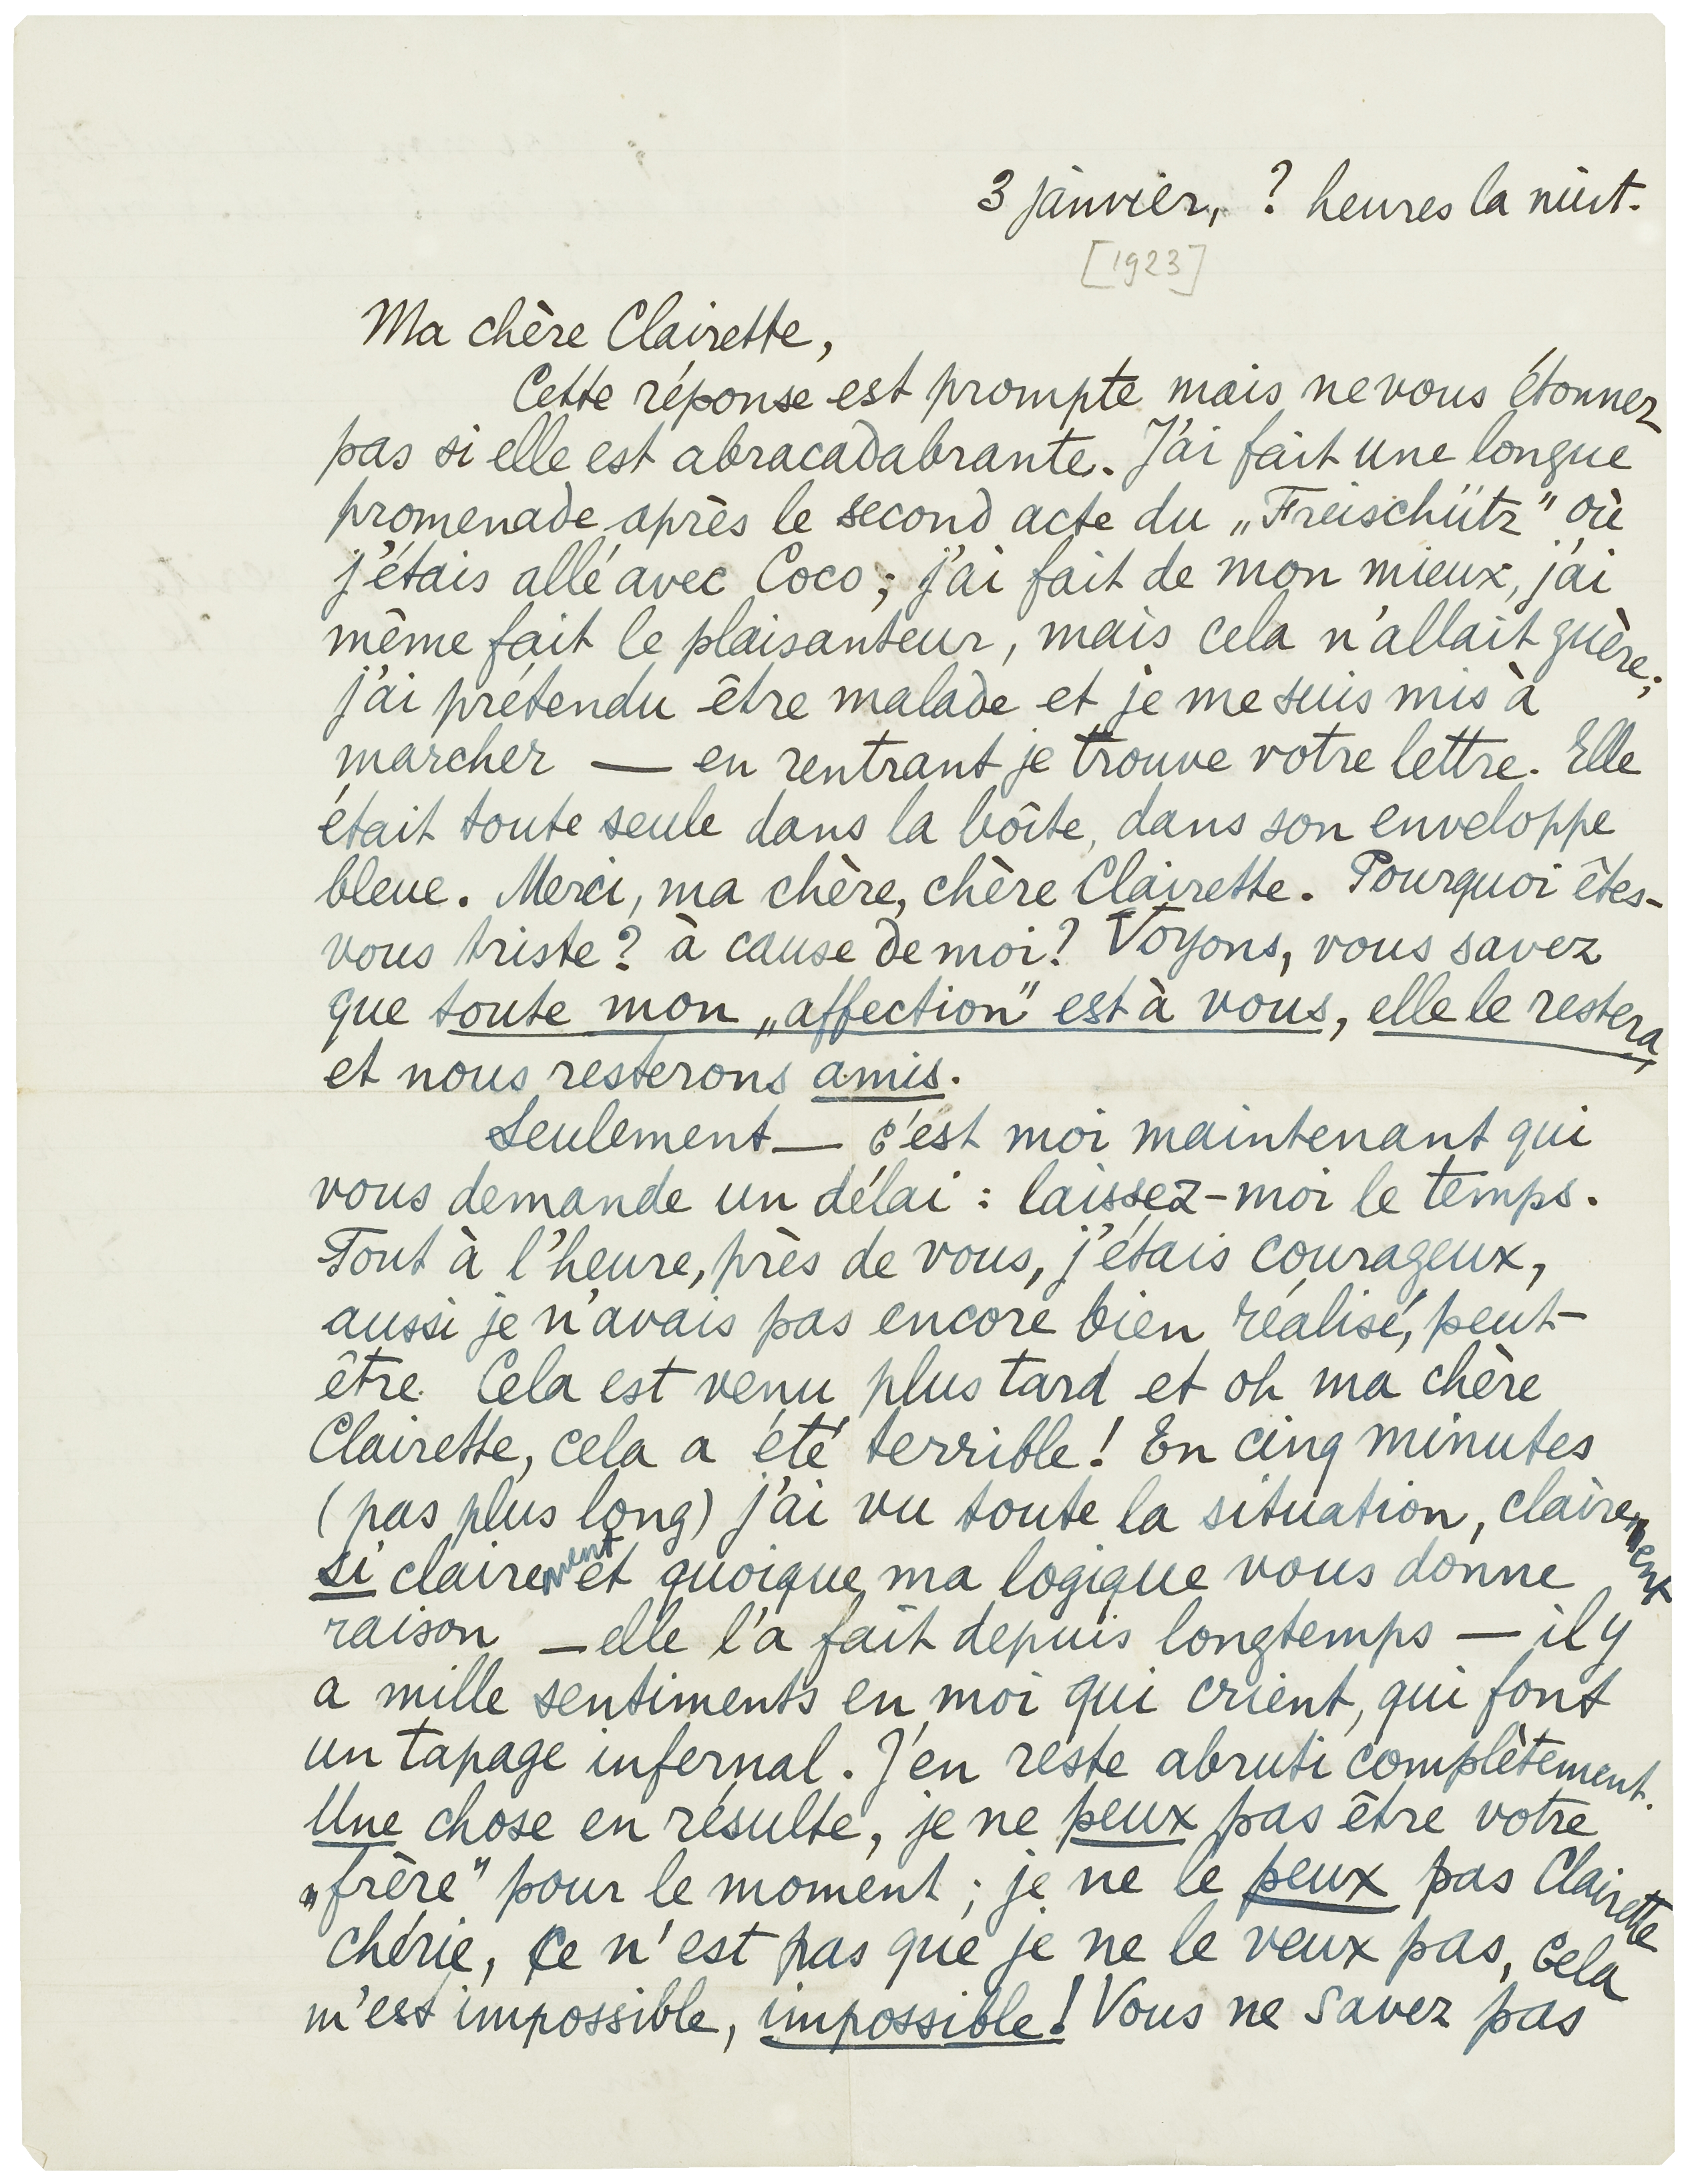 3 janvier, ? heures la nuit.
[1923]
Ma chère Clairette,
Cette réponse est prompte mais ne vous étonnez
pas si elle est abracadabrante. J'ai fait une longue
promenade après le second acte du „Freischütz" où
j'étais allé avec Coco; j'ai fait de mon mieux, j'ai
même fait le plaisanteur, mais cela n'allait guère;
j'ai prétendu être malade et je me suis mis à
marcher — en rentrant je trouve votre lettre. Elle
était toute seule dans la boîte, dans son enveloppe
bleue. Merci, ma chère, chère Clairette. Pourquoi êtes-
vous triste? à cause de moi? Voyons, vous savez
que toute mon „affection" est à vous, elle le restera,
et nous resterons amis.
Seulement — c'est moi maintenant qui
vous demande un délai : laissez-moi le temps.
Tout à l'heure, près de vous, j'étais courageux,
aussi je n'avais pas encore bien réalisé, peut-
être. Cela est venu plus tard et oh ma chère
Clairette, cela a été terrible! En cinq minutes
(pas plus long) j'ai vu toute la situation, clairement
si clairement et quoique ma logique vous donne
raison — elle l'a fait depuis longtemps — il y
a mille sentiments en moi qui crient, qui font
un tapage infernal. J'en reste abruti complètement.
Une chose en résulte, je ne peux pas être votre
„frère" pour le moment ; je ne le peux pas Clairette
chérie, Ce n'est pas que je ne le veux pas, cela
m'est impossible, impossible! Vous ne savez pas